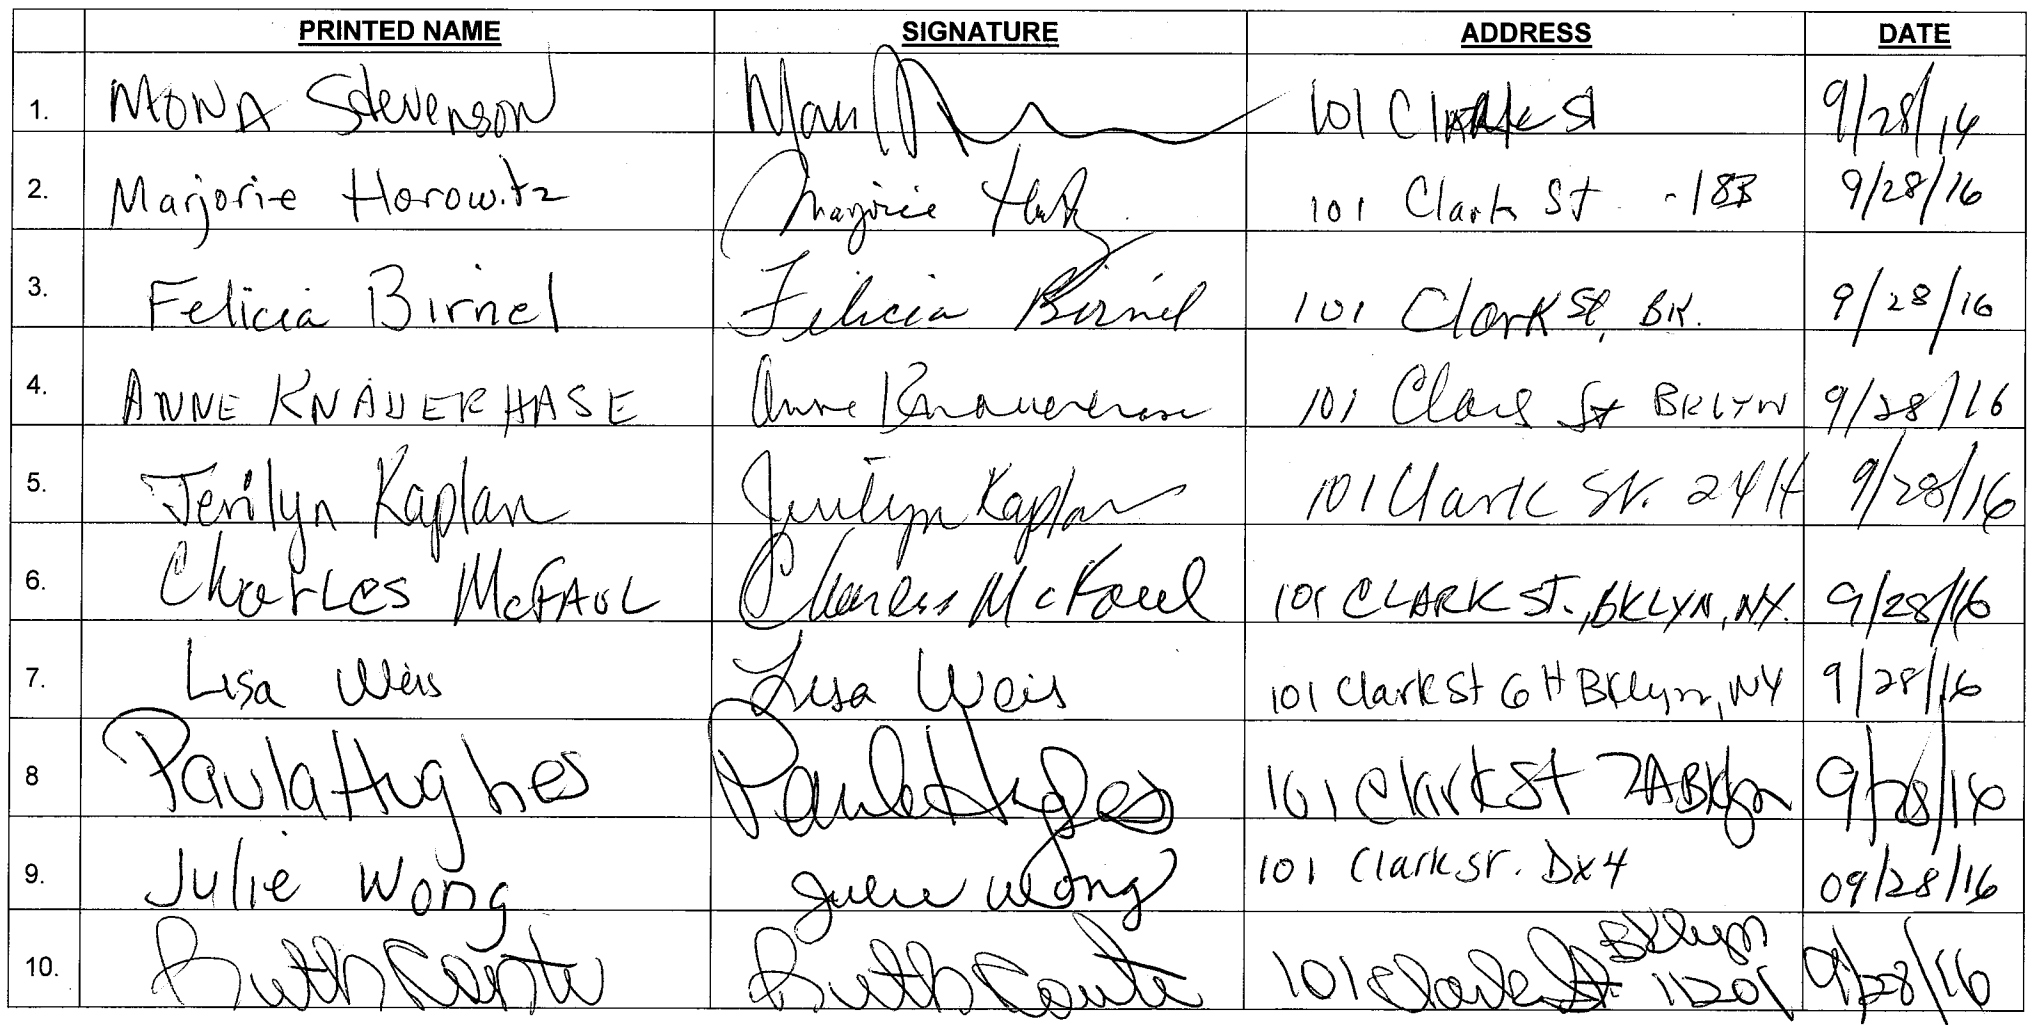 PRINTED NAME SIGNATURE ADDRESS DATE
1. MONA Stevenson 101 Clark St 9/28/16
2. Marjorie Horowitz Marjorie 101 Clark St - 18B 9/28/16
3. Felicia Birnel Felicia Birnel 101 Clark St, BK. 9/28/16
4. ANNE KNAUERHASE Anne Knauerhase 101 Clark St BKLYN 9/28/16
5. Jerilyn Kaplan Jerilyn Kaplan 101 Clark St. 24H 9/28/16
6. Charles McFAUL Charles McFaul 101 CLARK ST., BKLYN, NY. 9/28/16
7. Lisa Weis Lisa Weis 101 Clark St 6H BKlyn, NY 9/28/16
8 Paula Hughes Paula Hughes 101 Clark St 7A BKlyn 9/28/16
9. Julie Wong Julie Wong 101 Clark St. 09/28/16
10. Ruth Conte Ruth Conte 101 Clark St. BKlyn 11201 9/28/16